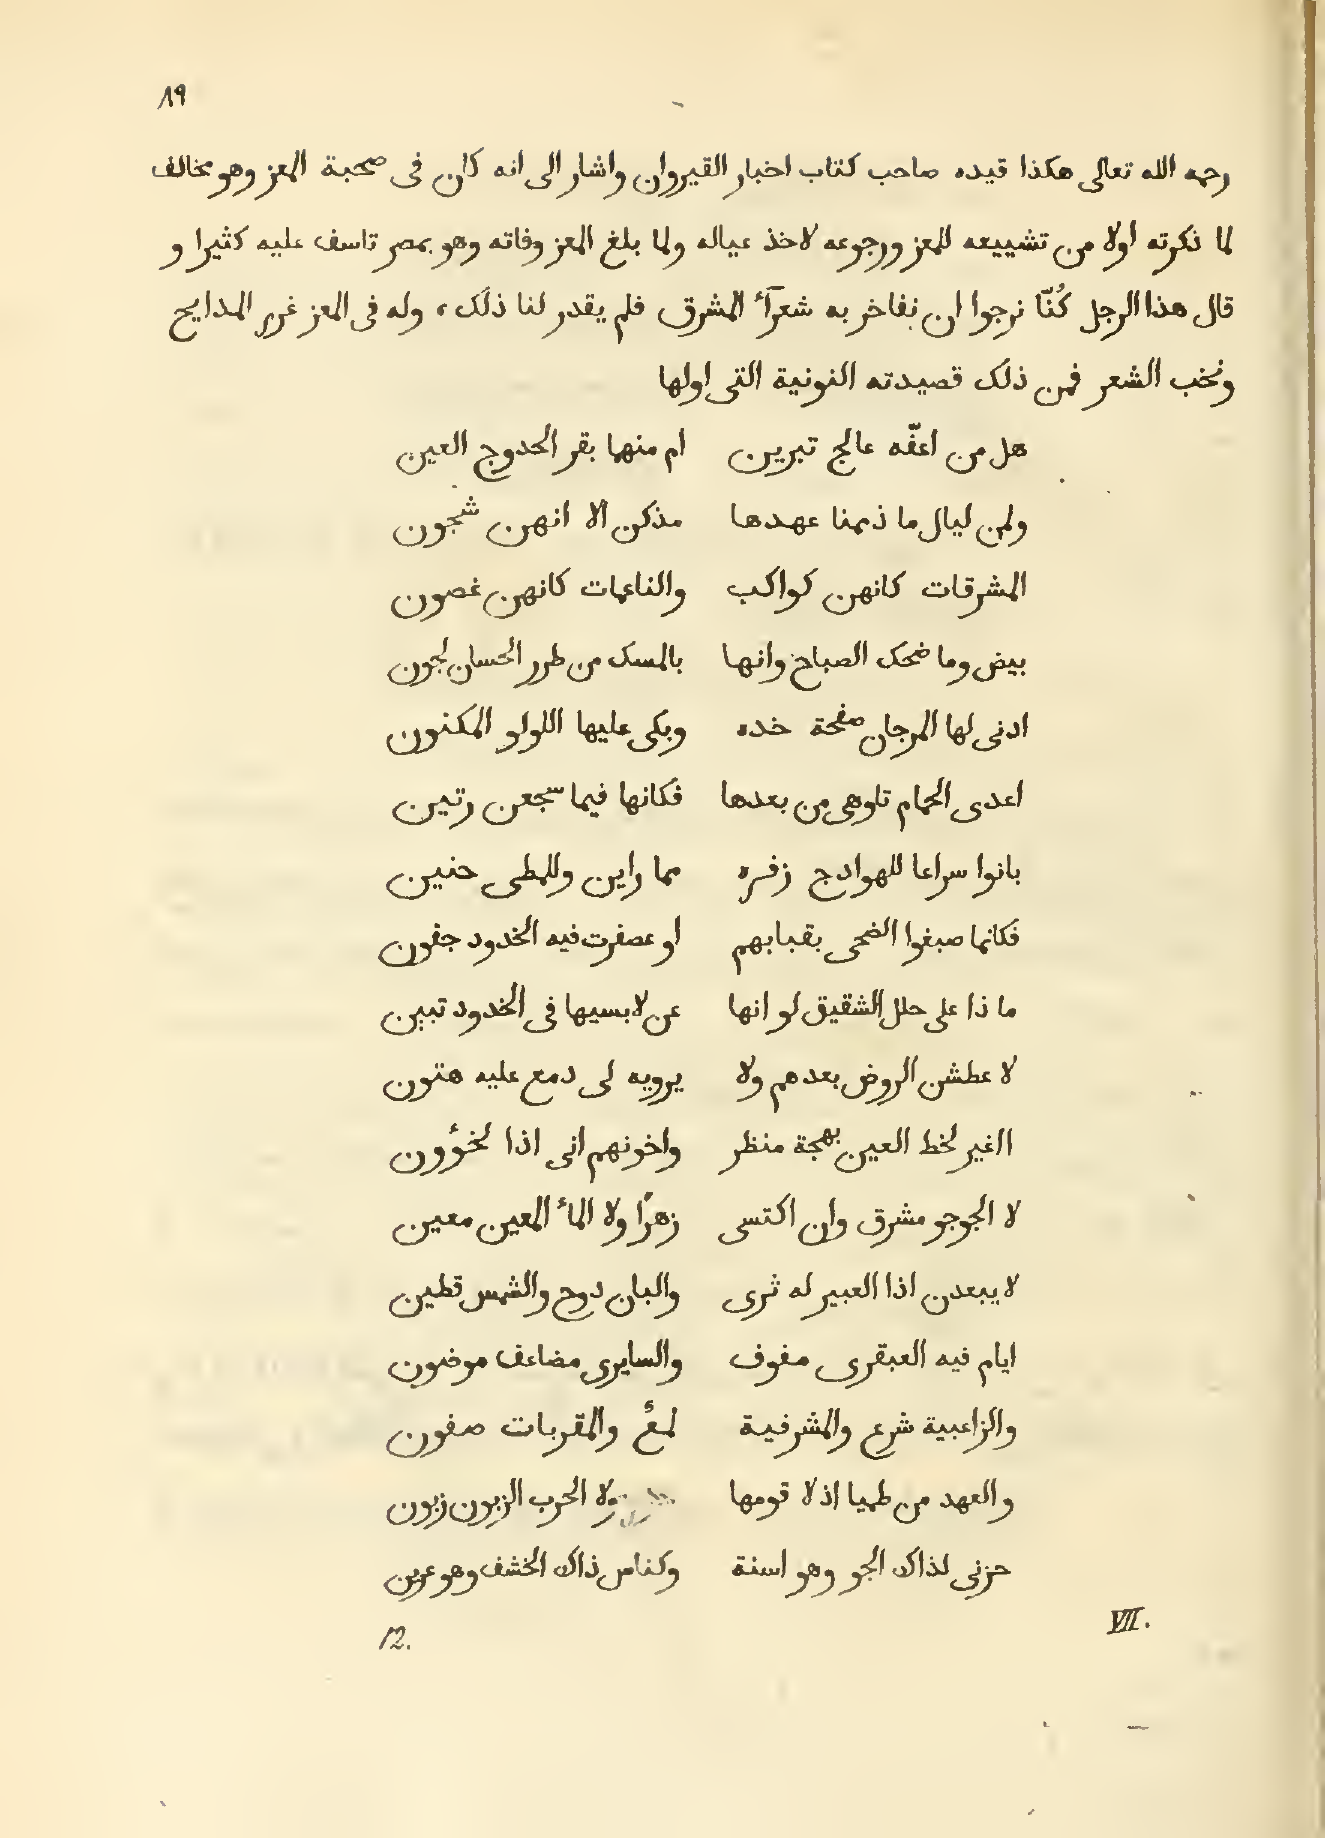 ٨٩
رحمه الله تعالى هكذا قيده صاحب كتاب اخبار القيروان واشار الى انه كان فى صحبة المعز وهو مخالف
لما ذكرته اولا من تشييعه للمعز ورجوعه لاخذ عياله ولما بلغ المعز وفاته وهو بمصر تاسف عليه كثيرا و
قال هذا الرجل كُنّا نرجوا ان نفاخر به شعرآء المشرق فلم يقدر لنا ذلك، وله فى المعز غرر المدايح
ونخب الشعر فمن ذلك قصيدته النونية التى اولها
هل من اعقّه عالج تبرين ام منهما بقر الحدوج العين
ولمن ليال ما ذممنا عهدها مذكن الا انهن شجون
المشرقات كانهن كواكب والناعمات كانهن غصون
بيض وما ضحك الصباح وانها بالمسك من طرر الحسان لجون
ادنى لها المرجان صفحة خده وبكى عليها اللولو المكنون
اعدى الحمام تاوهى من بعدها فكانها فيما سجعن رتين
بانوا سراعا للهوادج زفره مما راين وللمطى حنين
فكانما صبغوا الضحى بقبابهم او عصفرت فيه الخدود جفون
ما ذا على حلل الشقيق لو انها عن لابسيها فى الخدود تبين
لا عطشن الروض بعدهم ولا يرويه لى دمع عليه هتون
االغير لخط العين بهجة منظر واخونهم انى اذا لخؤون
لا الجوجو مشرق وان اكتسى زهرًا ولا الماء المعين معين
لا يبعدن اذا العبير له ثرى والبان دوح والشمس قطين
ايام فيه العبقرى مفوف والسايرى مضاعف موضون
والزاعبية شرع والمشرفية لمعٌ والمقربات صفون
والعهد من لميا اذ لا قومها ولا الحرب الزبون زبون
حزنى لذاك الجو وهو اسنة وكناس ذاك الخشف وهو عرين
12.
VII.